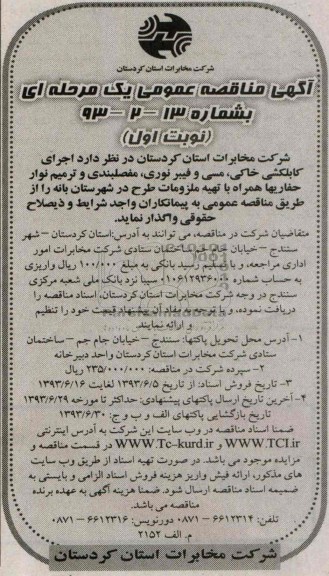 شرکت مخابرات استان کردستان
آگهی مناقصه عمومی یک مرحله ای
بشماره ۱۳-۲-۹۳
(نوبت اول)
شرکت مخابرات استان کردستان در نظر دارد اجرای
کابلکشی خاکی، مسی و فیبر نوری، مفصلبندی و ترمیم نوار
حفاریها همراه با تهیه ملزومات طرح در شهرستان بانه را از
طریق مناقصه عمومی به پیمانکاران واجد شرایط و ذیصلاح
حقوقی واگذار نماید.
متقاضیان شرکت در مناقصه، می توانند به آدرس:استان کردستان – شهر
سنندج – خیابان ساختمان ستادی شرکت مخابرات امور
اداری مراجعه، و با تسلیم رسید بانکی به مبلغ ۱۰۰/۰۰۰ ریال واریزی
به حساب شماره سیبا نزد بانک ملی شعبه مرکزی
سنندج در وجه شرکت مخابرات استان کردستان، اسناد مناقصه را
دریافت نموده، و با توجه به مفاد آن پیشنهاد قیمت خود را تنظیم
و ارائه نمایند.
۱- آدرس محل تحویل پاکتها: سنندج – خیابان جام جم – ساختمان
ستادی شرکت مخابرات استان کردستان واحد دبیرخانه
۲- سپرده شرکت در مناقصه: ۲۳۵/۰۰۰/۰۰۰ ریال
۳- تاریخ فروش اسناد: از تاریخ ۱۳۹۳/۶/۵ لغایت ۱۳۹۳/۶/۱۶
۴- آخرین تاریخ ارسال پاکتهای پیشنهادی: حداکثر تا مورخه ۱۳۹۳/۶/۲۹
تاریخ بازگشایی پاکتهای الف و ب و ج: ۱۳۹۳/۶/۳۰
ضمنا اسناد مناقصه در وب سایت این شرکت به آدرس اینترنتی
WWW.TCI.ir و WWW.Tc-kurd.ir در قسمت مناقصه و
مزایده موجود می باشد. در صورت تهیه اسناد از طریق وب سایت
های مذکور، ارائه فیش واریز هزینه فروش اسناد الزامی و بایستی به
ضمیمه اسناد مناقصه ارسال شود. ضمنا هزینه آگهی به عهده برنده
مناقصه می باشد.
تلفن: ۶۶۱۲۳۱۴ – ۰۸۷۱ دورنویس: ۶۶۱۲۳۱۶ – ۰۸۷۱
م. الف ۲۱۵۲
شرکت مخابرات استان کردستان